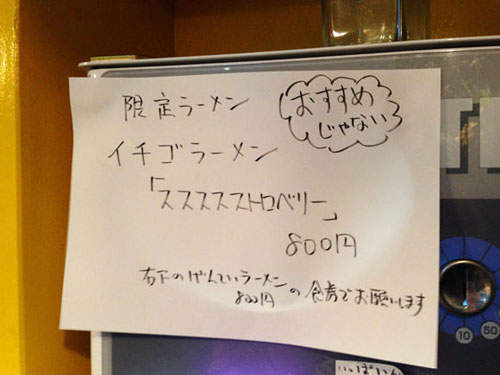 限定ラーメン
おすすめ
じゃない
イチゴラーメン
「スススストロベリー」
800円
右下のげんていラーメン
800円の食券でお願いします
10
50